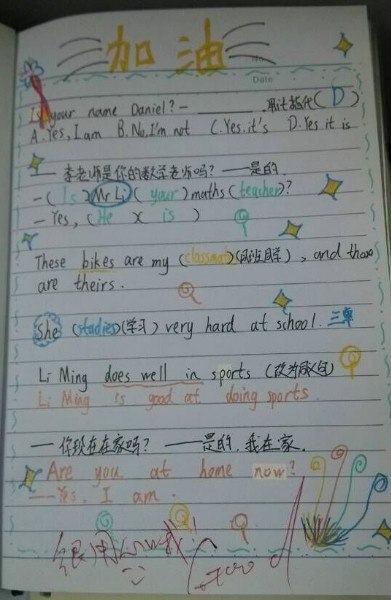 加油
Date
Is your name Daniel? — ________. 用it指代 ( D )
A. Yes, I am B. No, I'm not C. Yes. it's D. Yes it is
— 李老师是你的数学老师吗? — 是的
— ( Is ) Mr Li ( your ) maths ( teacher )?
— Yes, ( He X is )
These bikes are my (classmat) , and those
are theirs.
She (studies) (学习) very hard at school. 三单
Li Ming does well in sports
Li Ming is good at doing sports.
— 你现在在家吗? — 是的, 我在家.
Are you at home now?
— Yes, I am.
很用